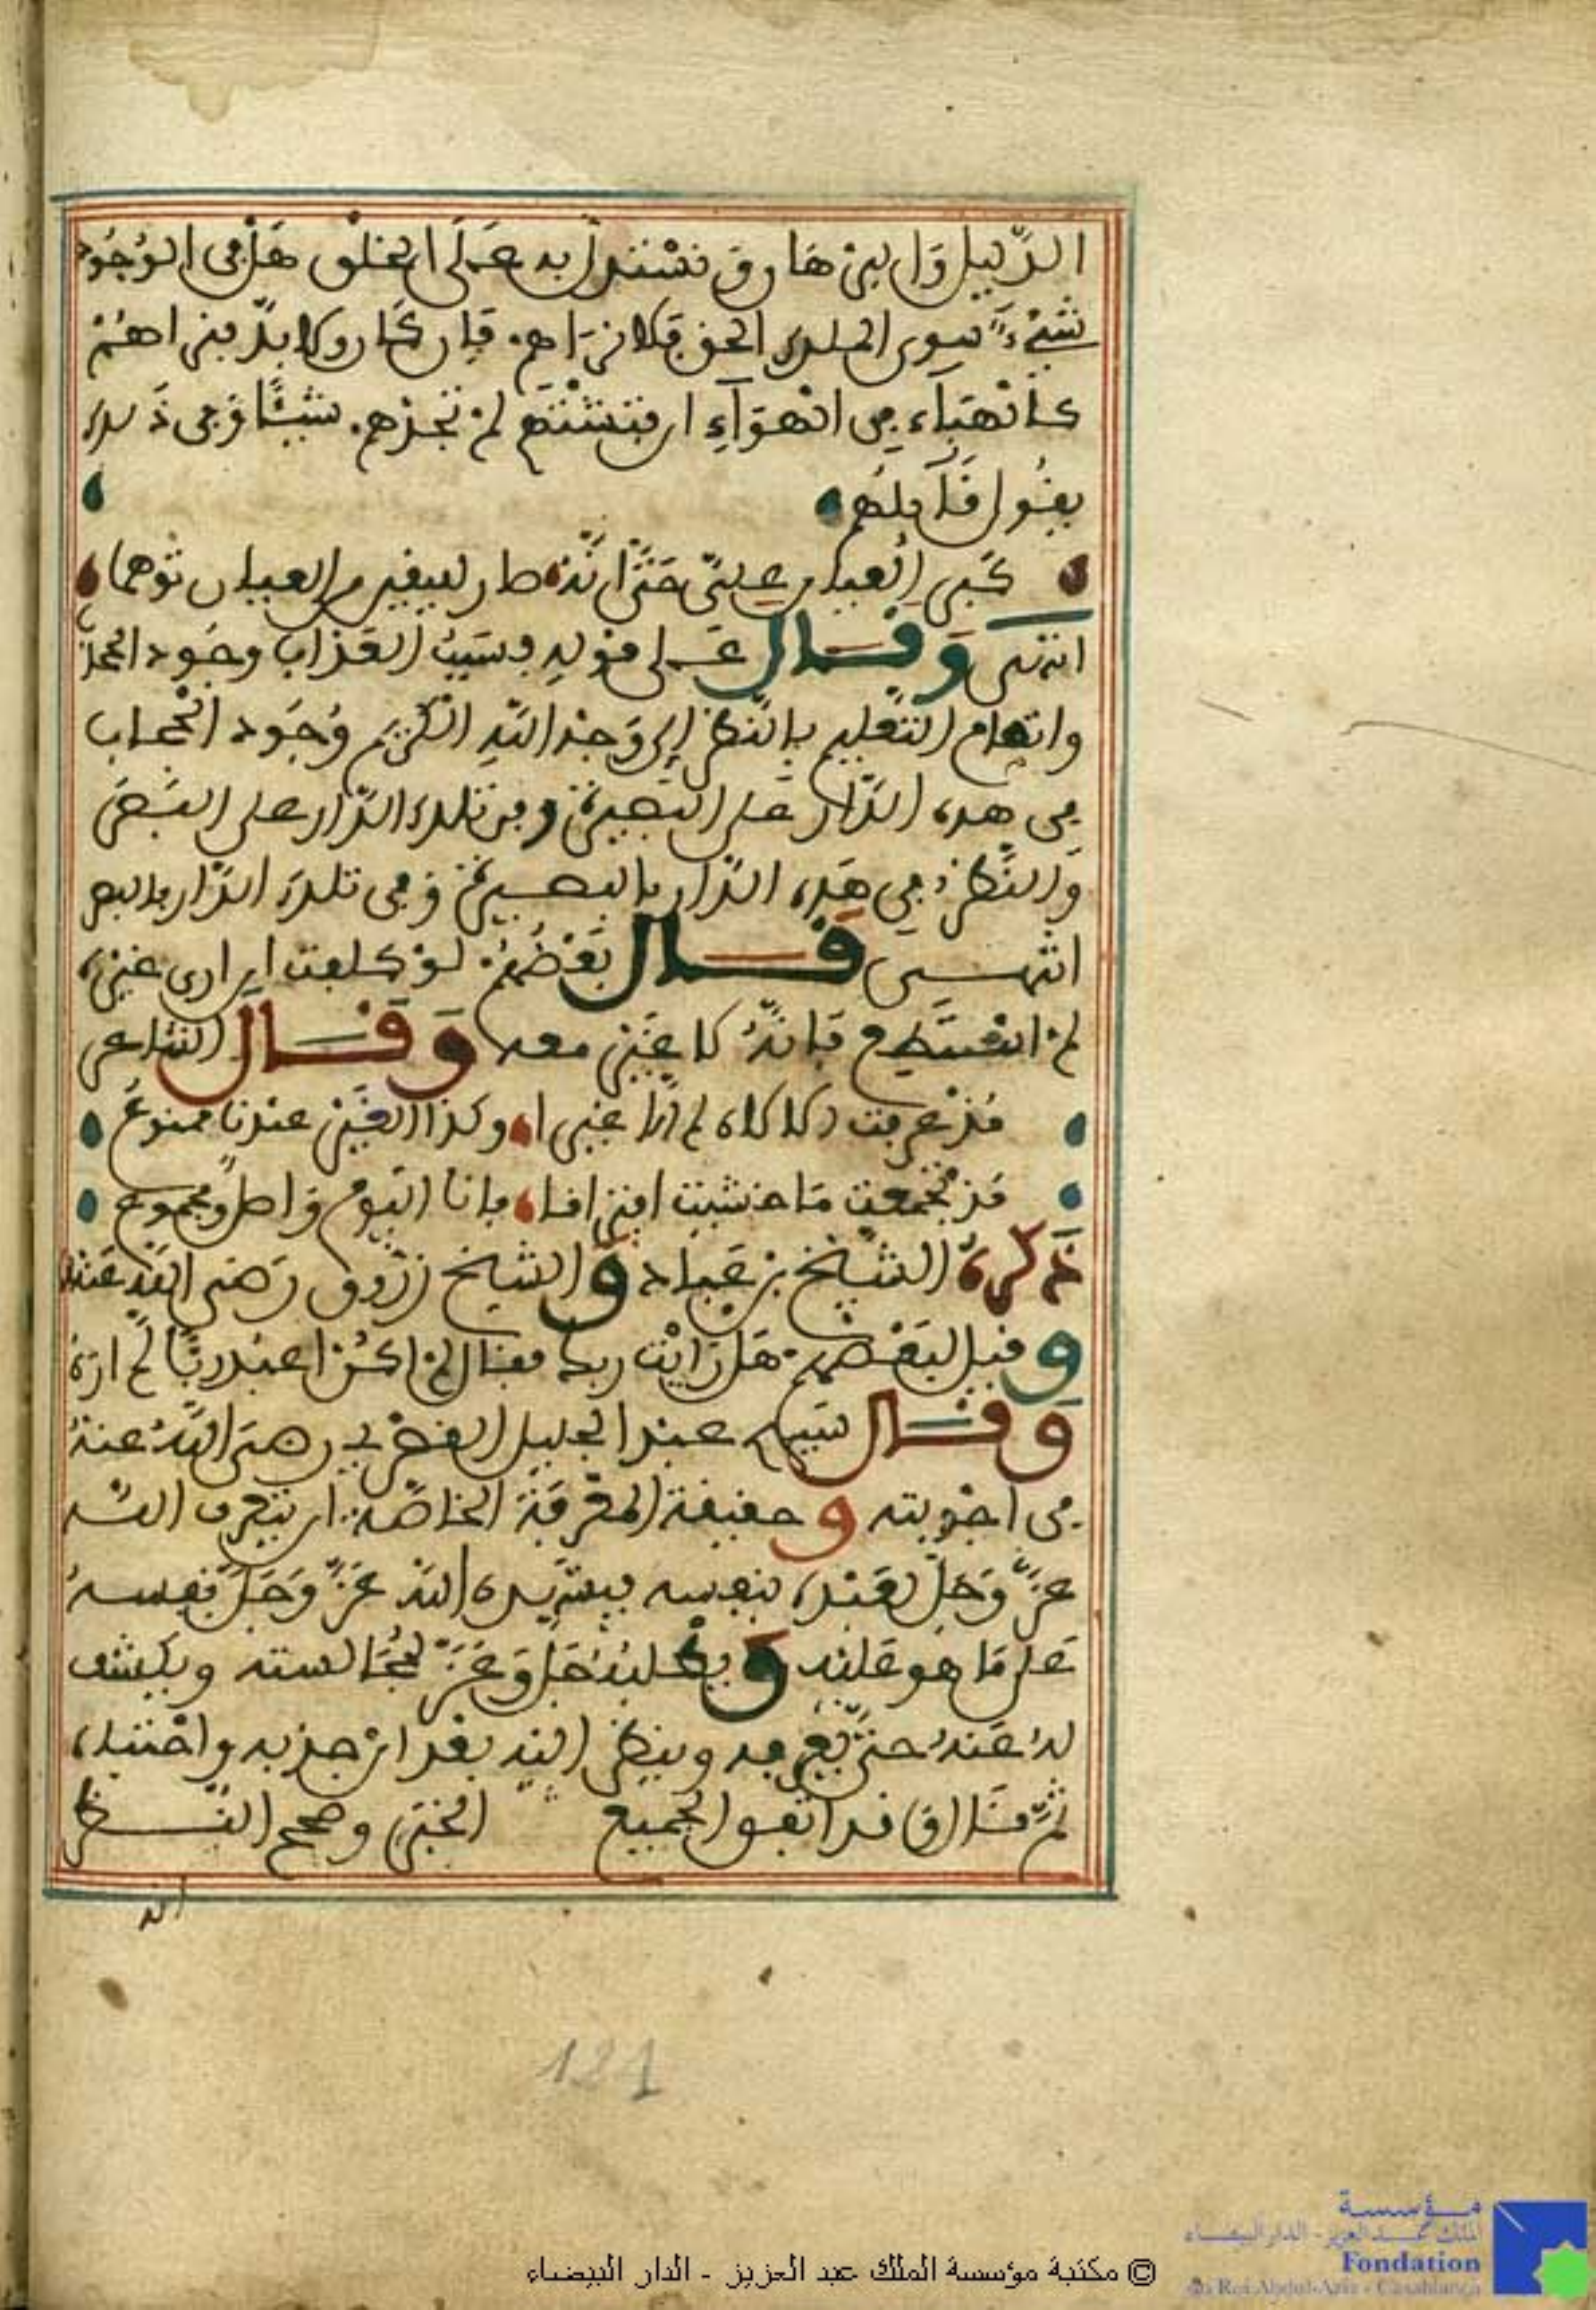 الدَّلِيل وَالبرْهَان وَنَسْتدِلُّ به عَلَى الخلْق هَلْ في الوُجُود
شَيْءٌ سِوى الملك الحق فلا نرَاهم فإن كَان ولا بدّ فتراهُمْ
كالْهبَاء في الْهوَآءِ ان فتشْتَهم لم تجدْهم شَيْئًا وَفي ذَلك
يقُول قَآيلهُم
كَبرَ الْعيان عليّ حَتَّى انَّه صار ليقين من العيان توهما
انتهى وَقَال عَلى قوْلِه وسَبَبُ العَذَاب وجُود الحجَاب
واتمام النَّعيم بالنَّظر إلى وَجْه اللّهِ الكَرِيم وُجُود الْحجاب
في هذه الدَّار عَلى البَصيرَة وفي تلك الدَّار على البَصَر
وَالنَّظر في هَذه الدَّار بالبصيرَة وَفي تلك الدَّار بالبصر
انتهى قَال بَعْضُهُمْ لوْ كلفت ان ارى غيْرَه
لم اسْتَطِع فَانّهُ لا غَيْر معه وَقَال الشاعر
مُذْ عرفت الالاه لم ار غيرا وكذا الغَيْر عندنَا ممنوعُ
مُذ تجمعت مَا خشيت افترَاقا فانا اليَوْم وَاصل مجموع
ذَكَرَه الشّيْخ بن عَبَاد وَالشيخ زَرّوق رَضي اللّه عَنْهُ
وقيل لبَعْضهم هَل رَايْت ربك فقال لم اكُنْ اعبُد ربًّا لم ارَهُ
وَقَال سَيدي عبد الجليل القصْري رضيَ اللّهُ عنهُ
في اجْوبته وحقيقة المعْرفَة الخاصَّة ان يتعرف اللّه
عزَّ وَجَلّ لعَبْدِه بنفسه فيشهده اللّه عَزَّ وَجَلَّ نَفسهُ
عَلى مَا هو عَليْه وَيطْلبُهُ جَلّ وَعَزّ لمُجَالسته ويكشف
لهُ عَنهُ حتَّى يعْرفه وينظر اليْه بعْد انْ جذبه واجْتبَاه
ثمَّ قَال وَقد اتفق الجميع الخبَر وصحيح النَّظر
الذ
121
© مكتبة مؤسسة الملك عبد العزيز - الدار البيضاء
مؤسسة
الملك عبد العزيز - الدار البيضاء
Fondation
du Roi Abdul-Aziz - Casablanca